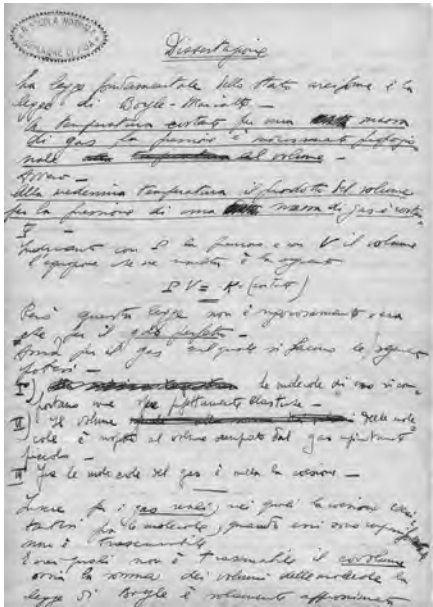 R. SCUOLA NORMALE
SUPERIORE DI PISA
Dissertazione
La legge fondamentale dello stato aeriforme è la
legge di Boyle-Mariotte —
A temperatura costante per una massa
di gas la pressione è inversamente proporzio
nale al volume —
Ovvero —
Alla medesima temperatura il prodotto del volume
per la pressione di una massa di gas è costan
Indicando con P la pressione e con V il volume
l'equazione che ne risulta è la seguente
P V = K (costante)
Però questa legge non è rigorosamente vera
che per il gas perfetto —
ossia per il gas nel quale si facciano le seguenti
potesi —
I) le molecole di esso si com
portano come sfere perfettamente elastiche —
II Il volume delle mole
cole è rispetto al volume occupato dal gas
piccolo —
III Fra le molecole del gas è nulla la coesione —
Invece per i gas reali, nei quali la coesione
fra le molecole, quando
non è trascurabile
E nei quali non è trascurabile il covolume
ossia la somma dei volumi delle molecole la
legge di Boyle è solamente approssimata